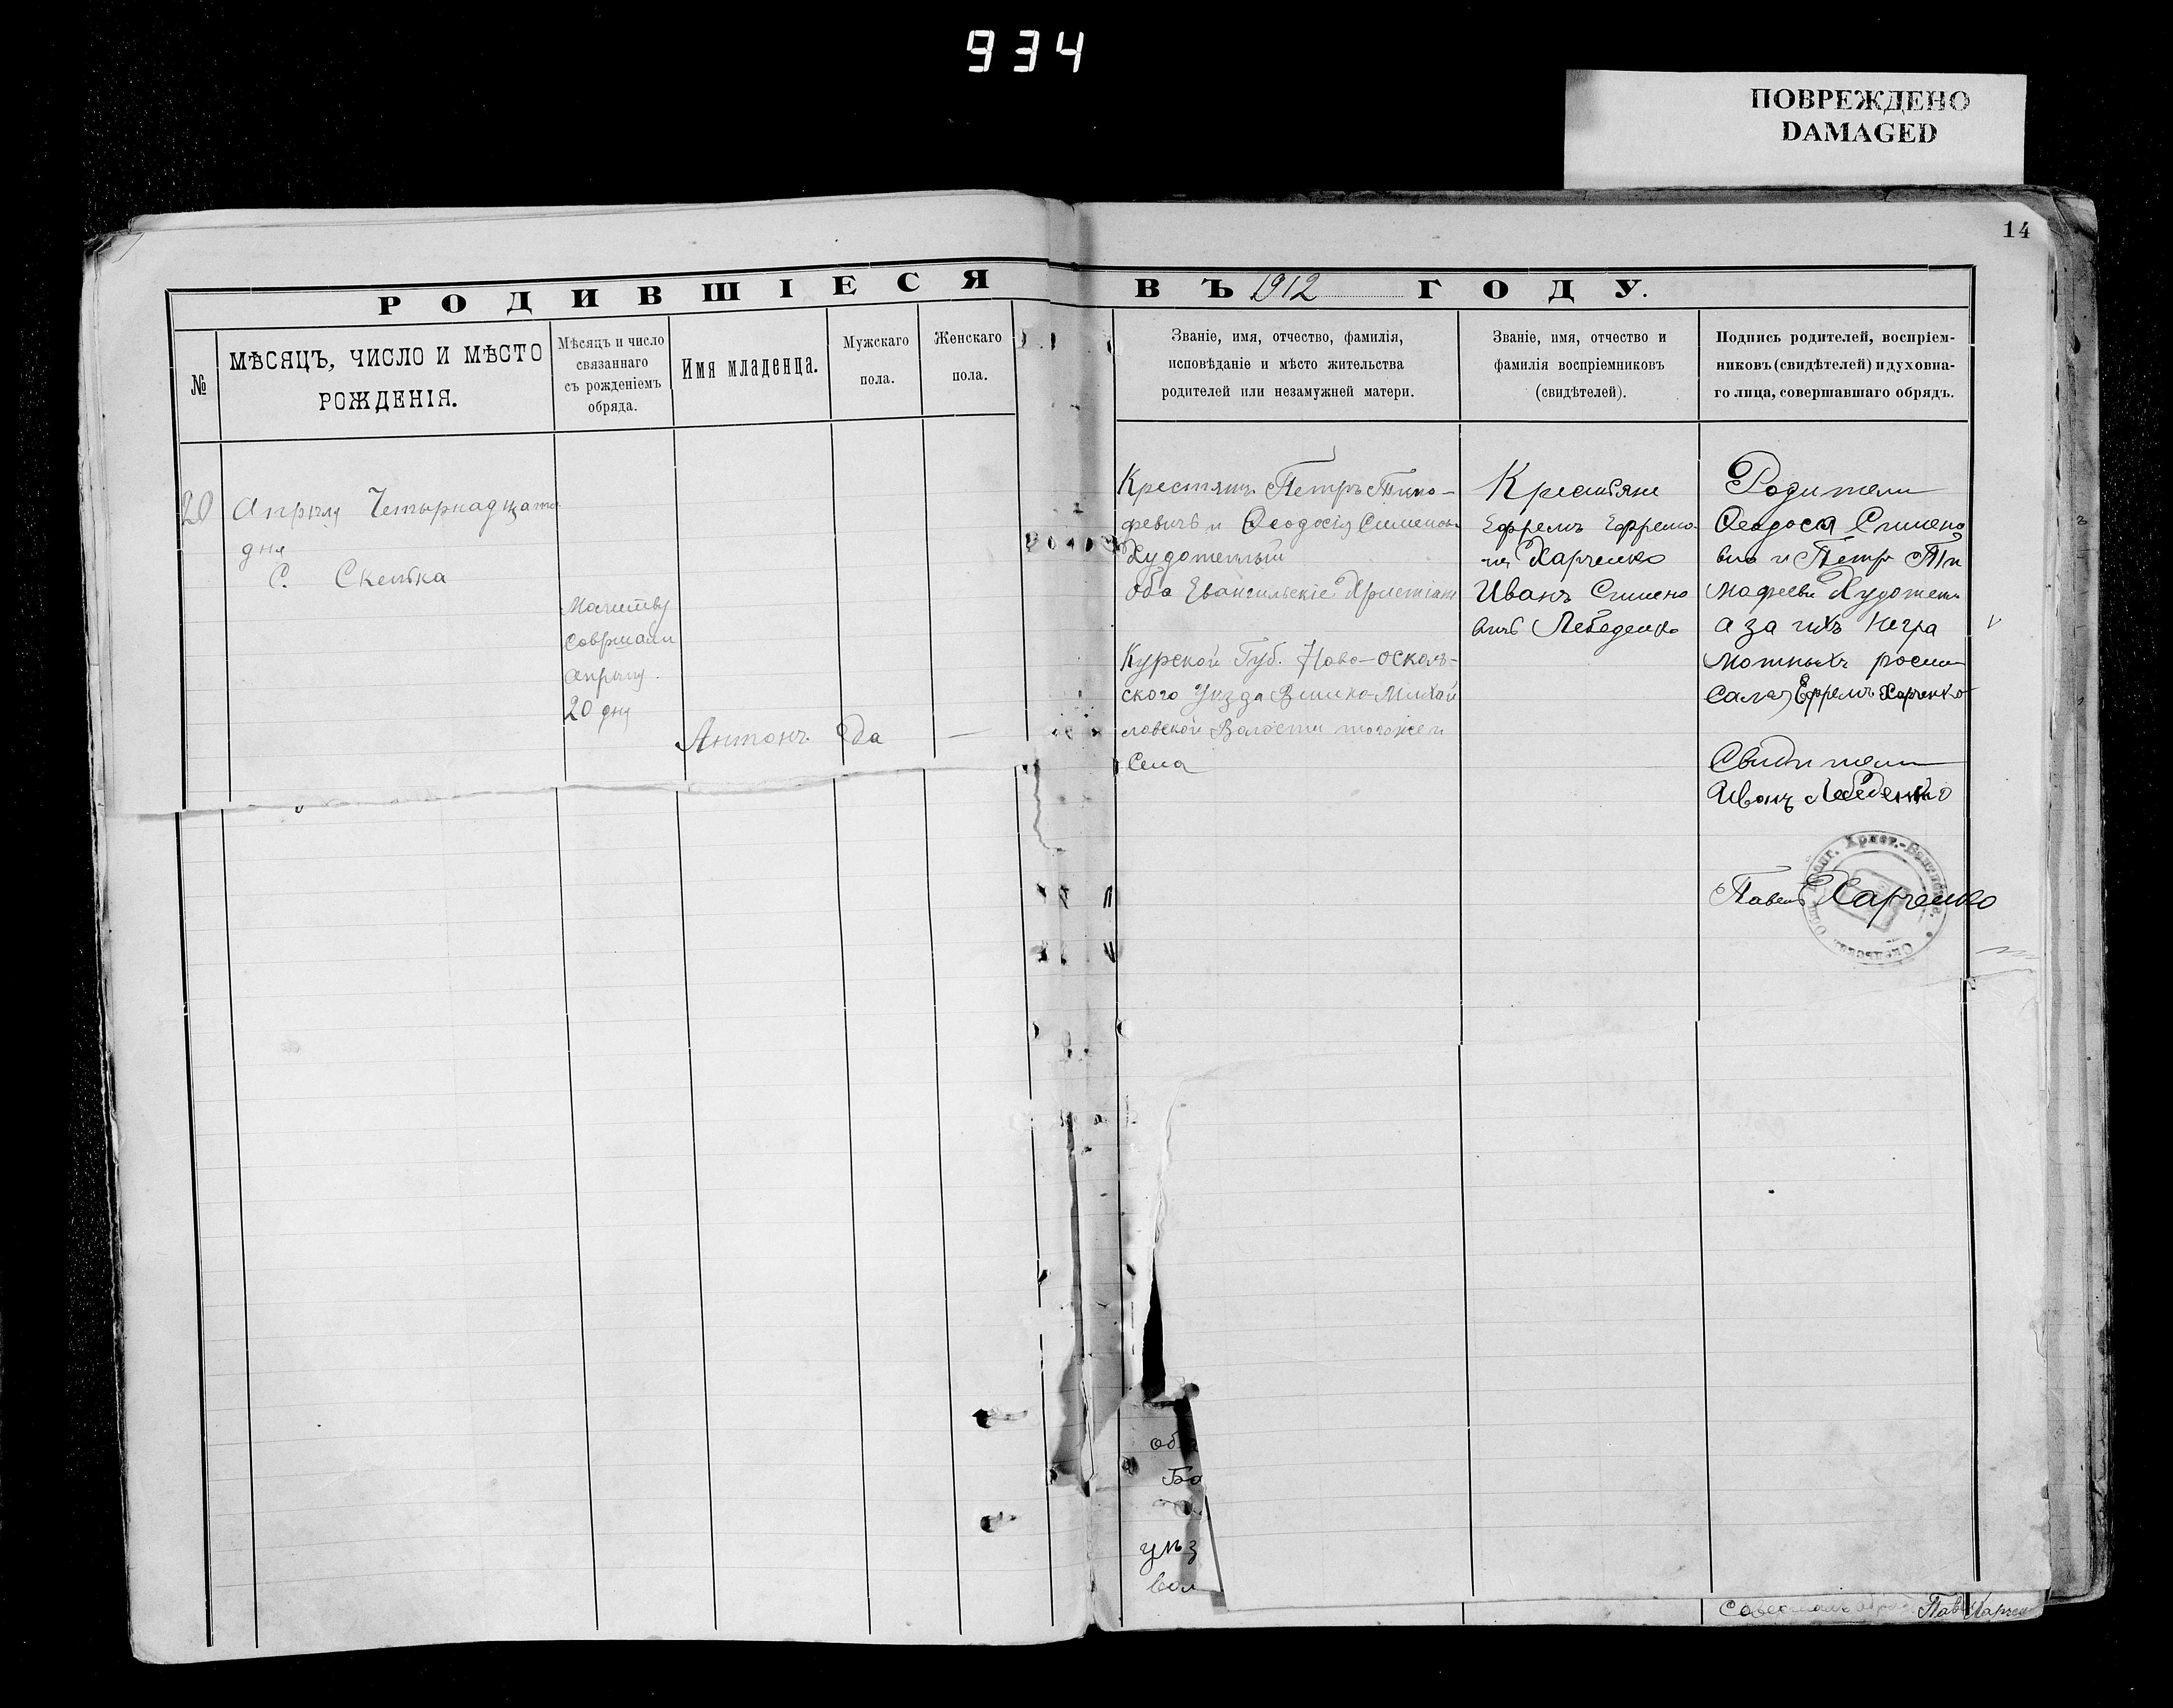 934
ПОВРЕЖДЕНО
DAMAGED
14
РОДИВШІЕСЯ
ВЪ 1912 ГОДУ.
№
МѢСЯЦЪ, ЧИСЛО И МѢСТО
РОЖДЕНІЯ.
Мѣсяцъ и число
связаннаго
съ рожденіемъ
обряда.
Имя младенца.
Мужскаго
пола.
Женскаго
пола.
Званіе, имя, отчество, фамилія,
исповѣданіе и мѣсто жительства
родителей или незамужней матери.
Званіе, имя, отчество и
фамилія воспріемниковъ
(свидѣтелей).
Подпись родителей, воспріем-
никовъ (свидѣтелей) и духовна-
го лица, совершавшаго обрядъ.
20
Апрѣля Четырнадцато
дня
С.
Молитву
апрѣля
20 дня
Антонъ
Да
—
Петръ Тимо-
феевичъ и Феодосія
оба
Курской Губ. Ново-Осколь-
ского Уѣзда Михай
ловской Волости тогоже
Села
Крестяне
Ефремъ Ефремо
Харченко
Иванъ Симено
вичъ Лебеденко
Родители
Феодося Симено
вна и Петр Ти
а за ихъ негра
мотныхъ роспи
сался Ефремъ Харченко
Свидители
Иванъ Лебеденко
Павелъ Харченко
Бо
уѣз
вол